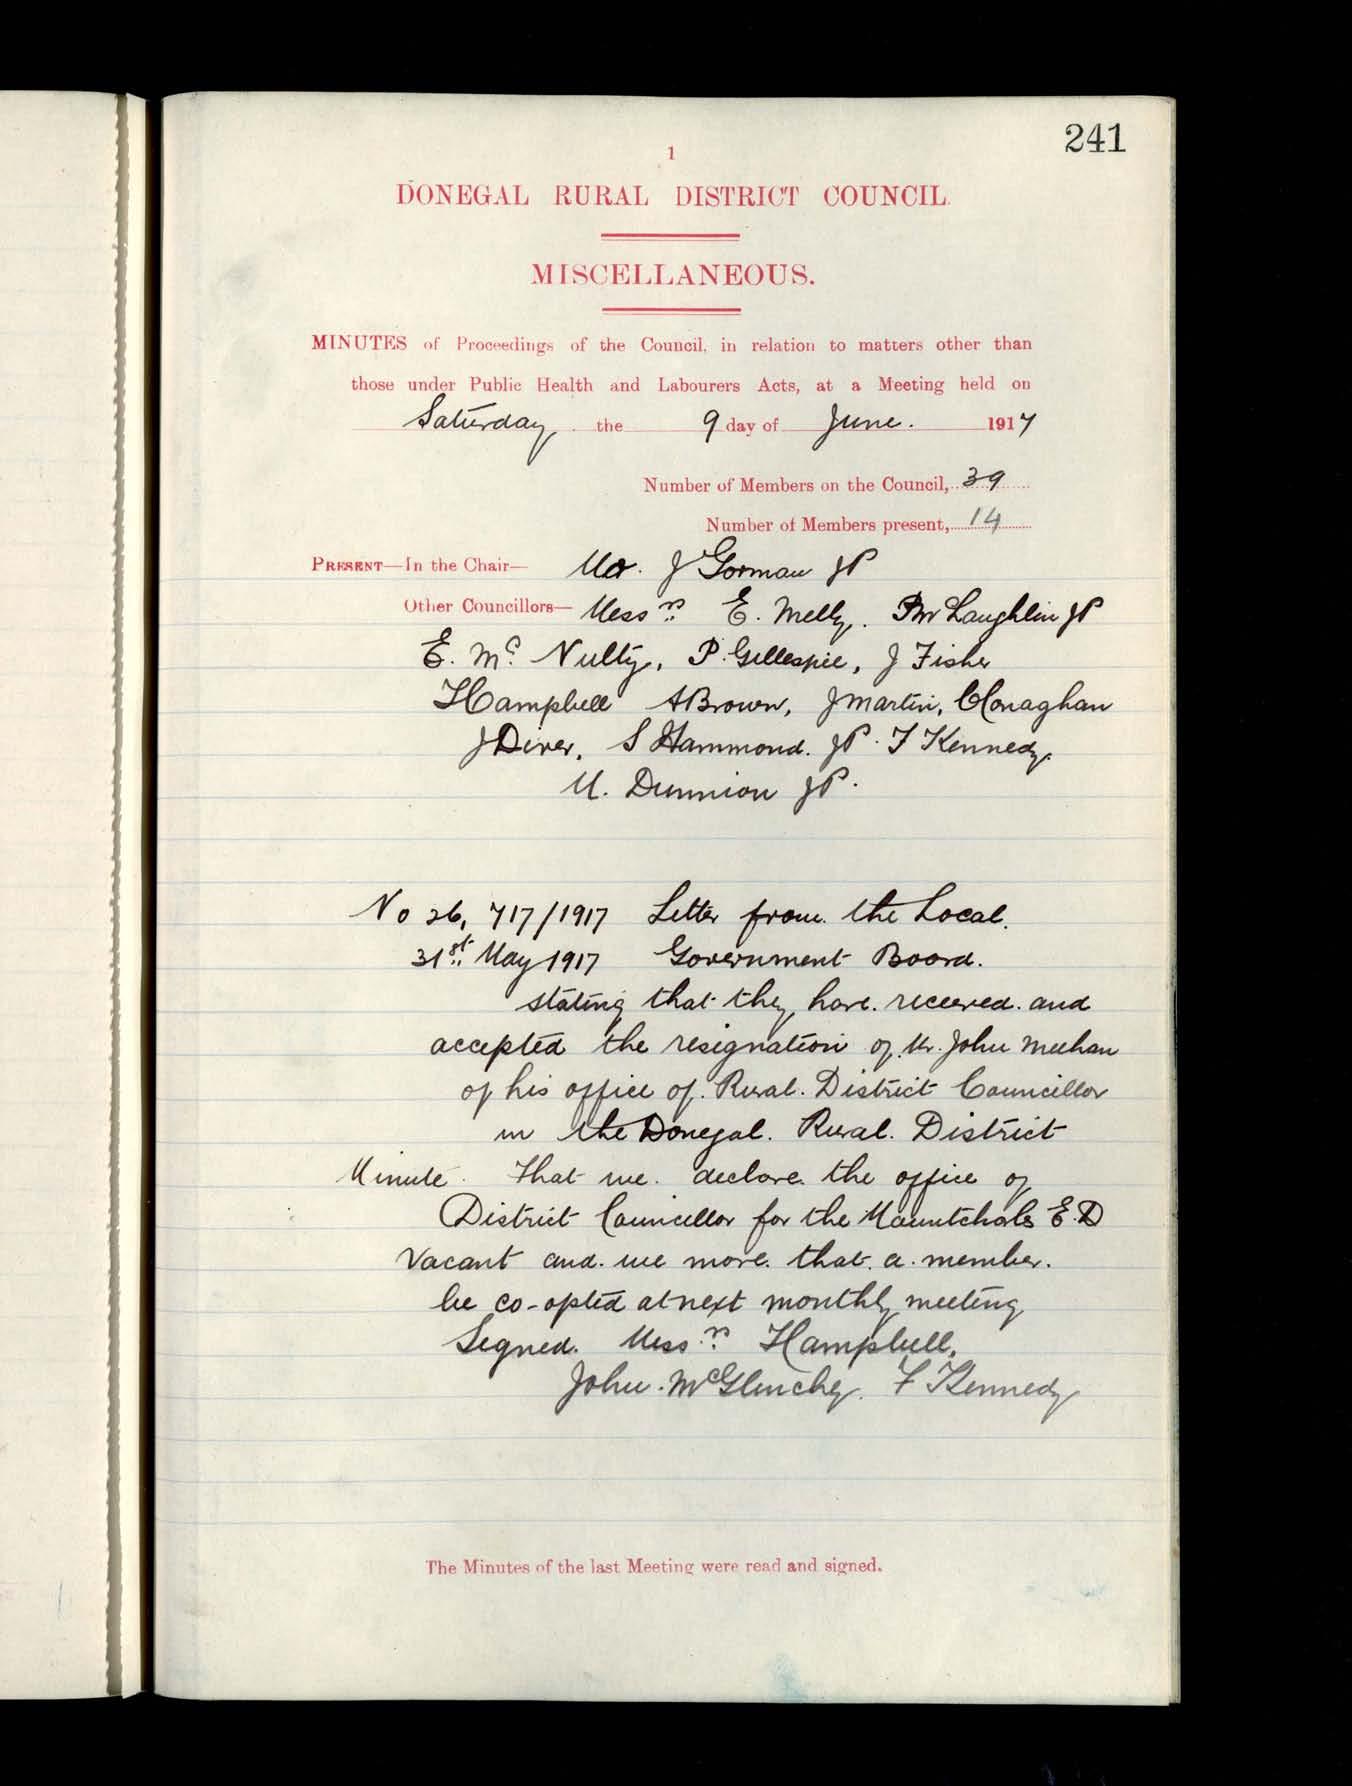 241
1
DONEGAL RURAL DISTRICT COUNCIL.
MISCELLANEOUS.
MINUTES of Proceedings of the Council, in relation to matters other than
those under Public Health and Labourers Acts, at a Meeting held on
Saturday the 9 day of June. 1917
Number of Members on the Council, 39
Number of Members present, 14
PRESENT—In the Chair— Mr. J Gorman JP
Other Councillors— Messrs E. Melly. P McLaughlin JP
E. Mc Nulty, P. Gillespie, J Fisher
H Campbell A Brown, J Martin, C Monaghan
J Diver, S Hammond. JP. F Kennedy.
M. Dunnion JP.
No 26, 717/1917 Letter from the Local.
31st May 1917 Government Board.
stating that they have received and
accepted the resignation of Mr. John Meehan
of his office of Rural District Councillor
in the Donegal. Rural. District
Minute. That we declare the office of
District Councillor for the Mountcharles E.D
Vacant and we move that a member.
be co-opted at next monthly meeting
Signed. Messrs H Campbell,
John McGlinchy. F Kennedy
The Minutes of the last Meeting were read and signed.